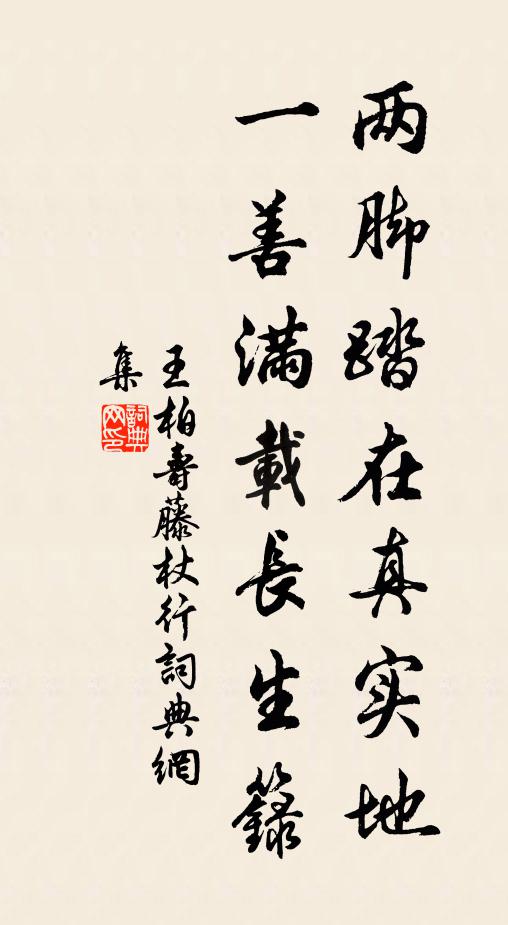 两脚踏在真实地
一善满載長生籙
王柏壽藤杖行詞典網
集
詞典网印